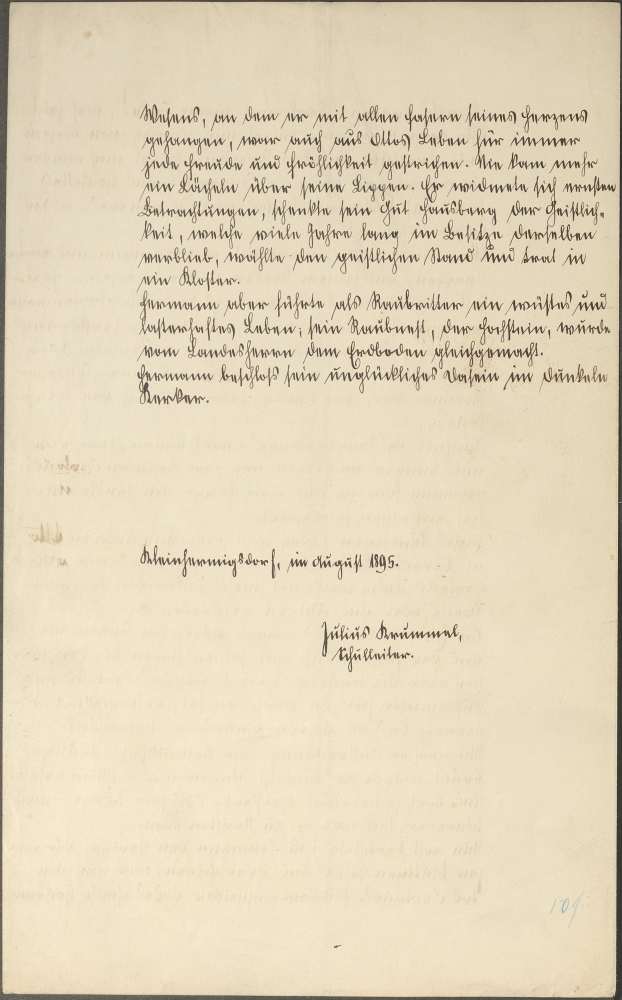 Wesens, an dem er mit allen Fasern seines Herzens
gehangen, war auch aus Ottos Leben für immer
jede Freude und Fröhlichkeit gestrichen. Nie kam mehr
ein Lächeln über seine Lippen. Er widmete sich ernsten
Betrachtungen, schenkte sein Gut Hausberg der Geistlich-
keit, welche viele Jahre lang im Besitze derselben
verblieb, wählte den geistlichen Stand und trat in
ein Kloster.
Hermann aber führte als Raubritter ein wüstes und
lasterhaftes Leben; sein Raubnest, der Hochstein, wurde
vom Landesherrn dem Erdboden gleichgemacht.
Hermann beschloß sein unglückliches Dasein im dunkeln
Kerker.
Kleinhermigsdorf, im August 1895.
Julius Krummel,
Schulleiter.